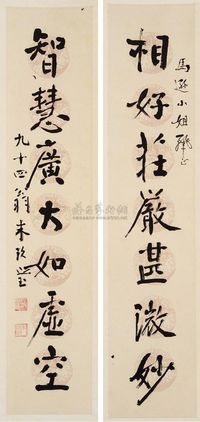 相好莊嚴甚微妙
馬遜小姐雅正
智慧廣大如虛空
九十四翁朱玖瑩